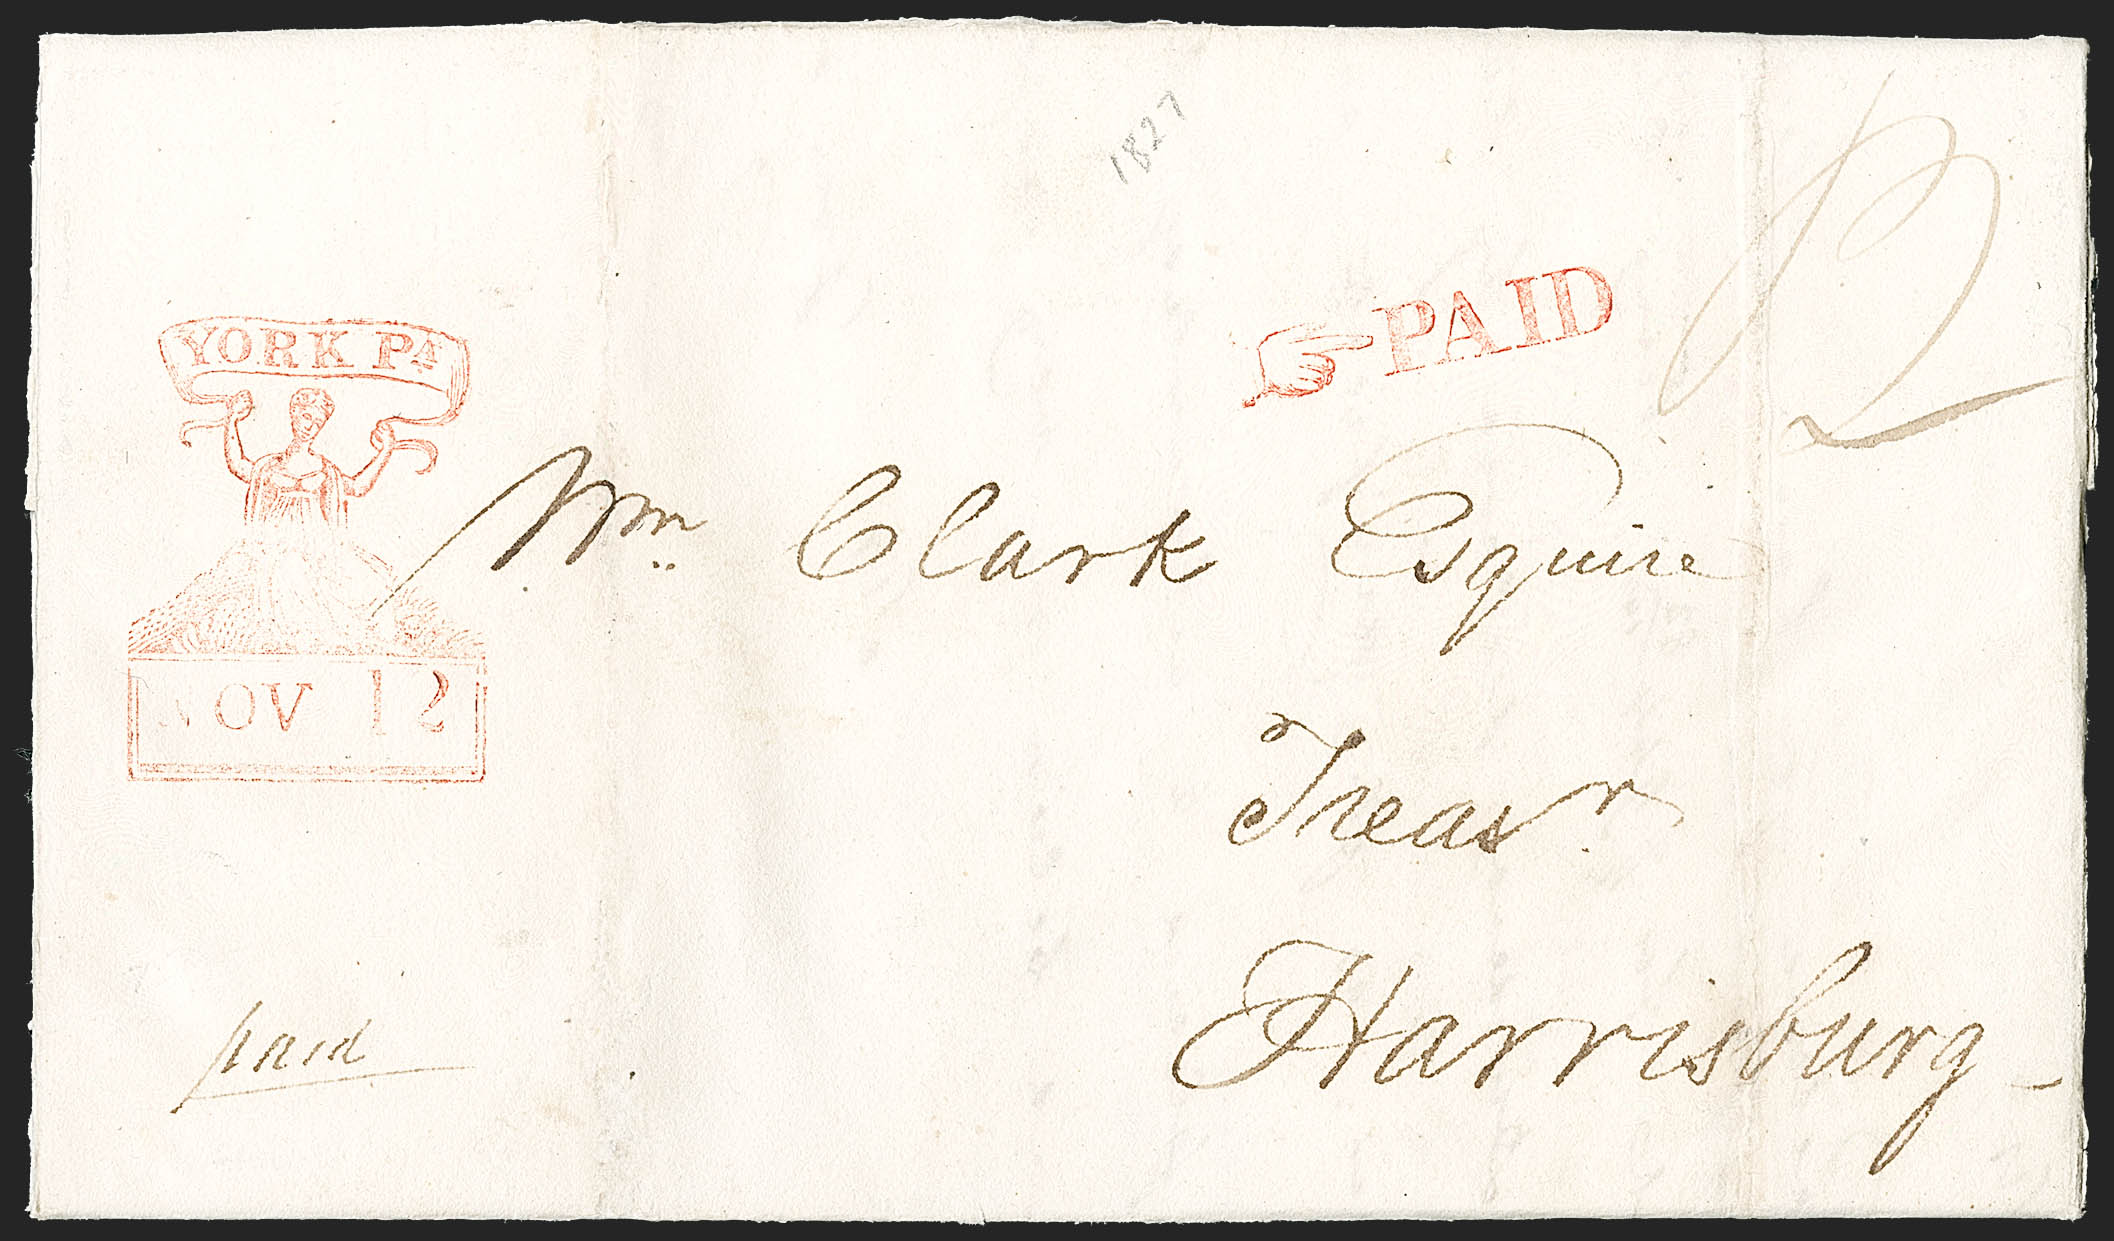 1827
YORK PA
NOV 12
PAID
12
Wm. Clark Esquire
Treasr.
Harrisburg
paid